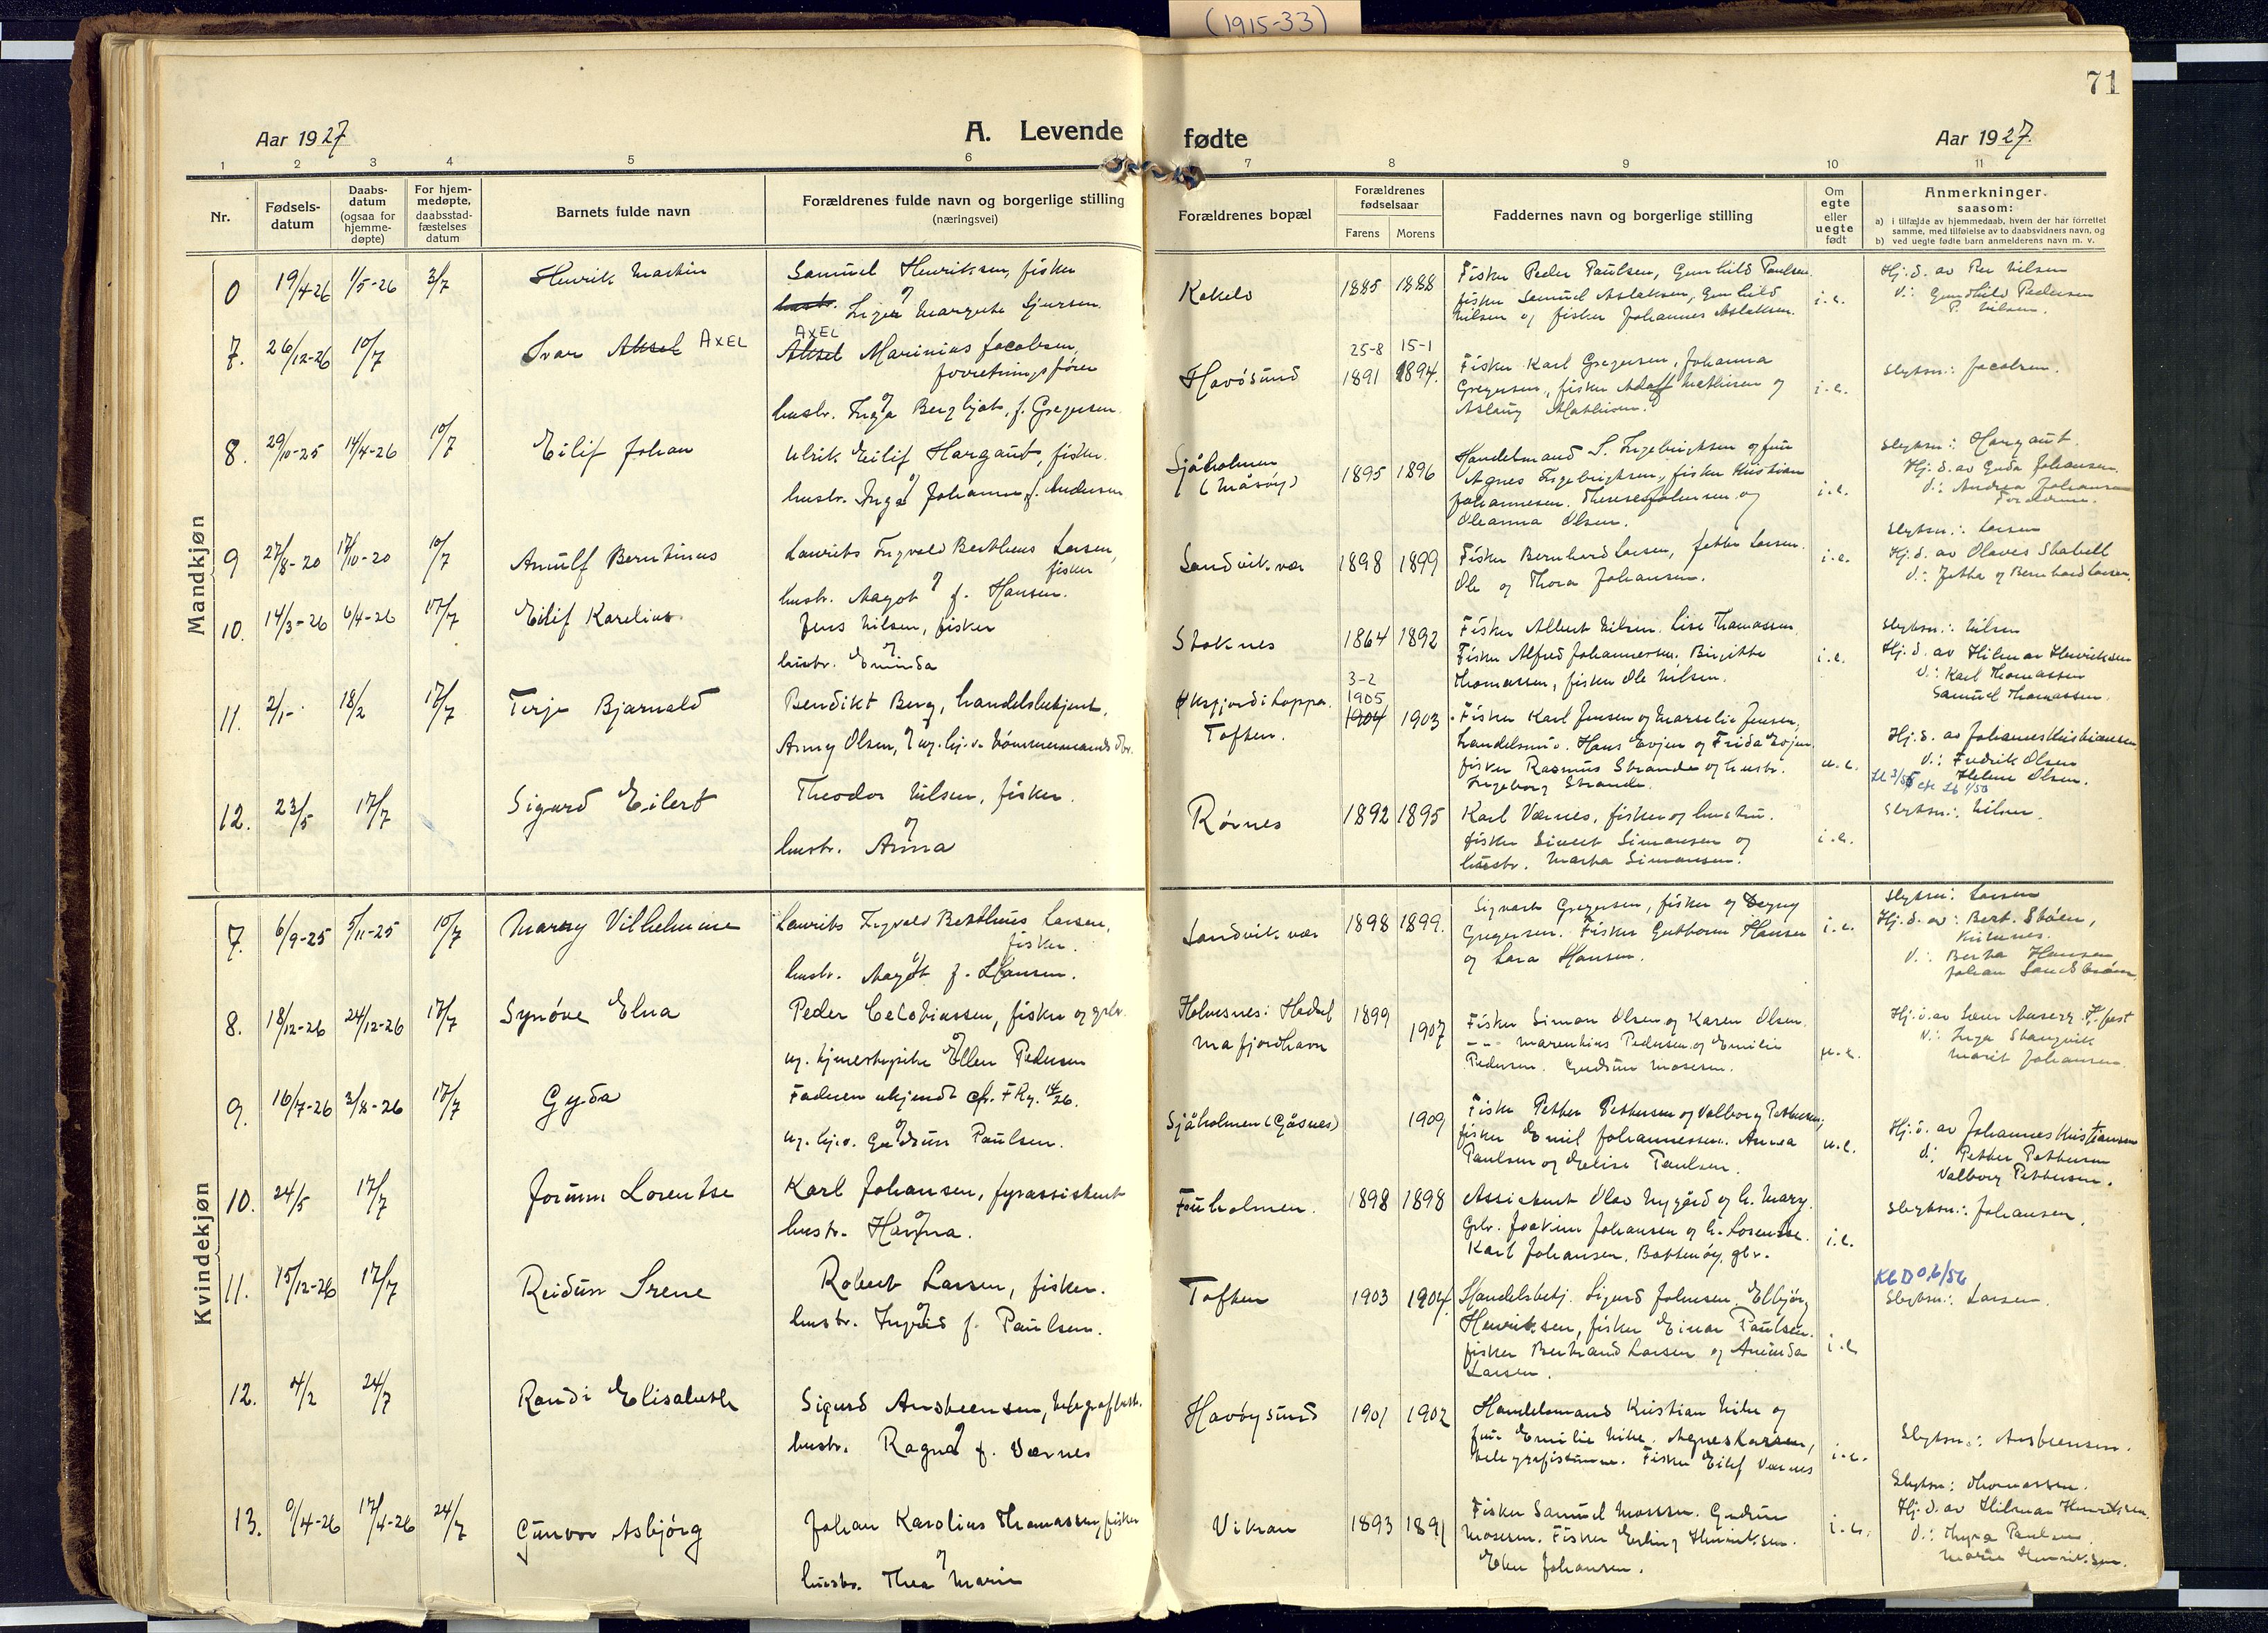 (1915-33)
71
Aar 1927
A. Levende fødte
Aar 1927.
1 2 3 4 5 6 7 8 9 10 11
Nr.
Fødsels-
datum
Daabs-
datum
(ogsaa for
hjemme-
døpte)
For hjem-
medøpte,
daabsstad-
fæstelses
datum
Barnets fulde navn
Forældrenes fulde navn og borgerlige stilling
(næringsvei)
Forældrenes bopæl
Forældrenes
fødselsaar
Farens Morens
Faddernes navn og borgerlige stilling
Om
egte
eller
uegte
født
Anmerkninger.
saasom:
a) i tilfælde av hjemmedaab, hvem der har forrettet
samme, med tilføielse av to daabsvidners navn, og
b) ved uegte fødte barn anmelderens navn m. v.
Mandkjøn
0 19/4-26 1/5-26 3/7 Henrik Martin
Samuel Henriksen, fisker
og
hustr. Margrete
Kokelv 1885 1888
Fisker Peder Paulsen, Gunhild Paulsen.
fisker Samuel Aslaksen, Gunhild
Nilsen og fisker Johannes Aslaksen.
i.e.
Hj.d. av Per Nilsen
V.: Gundhild Pedersen
P. Nilsen.
7. 26/12-26 10/7 Ivar Aksel AXEL
AXEL
Aksel Marinius Jacobsen,
forretningsfører
og
hustr. Inga Bergljot, f. Gregersen.
Havøsund
25-8 15-1
1891 1894.
Fisker Karl Gregersen, Johanna
Gregersen, fisker Adolf Mathisen og
Aslaug Mathisen.
i.e.
Slegtsn.: Jacobsen.
8. 29/10-25 14/4-26 10/7 Eilif Johan
Ulrik Eilif Hargaut, fisker.
og
hustr. Inga Johanne f. Andersen
Sjåholmen
(Måsøy)
1895 1896
Handelsmand S. Ingebrigtsen og frue
Agnes Ingebrigtsen, fisker Kristian
Johannesen. Therese Johnsen og
Oleanna Olsen.
i.e.
Slegtsn.: Hargaut.
Hj.d. av Gyda Johansen.
V.: Andrea Johansen
Forældrene.
9 27/8-20 17/10-20 10/7 Arnulf Berntinus
Laurits Ingvald Bertheus Larsen,
fisker
og
hustr. Aagot f. Hansen.
Sandvikvær 1898 1899
Fisker Bernhard Larsen, Jetta Larsen.
Ole og Thora Johansen.
i.e.
Slegtsn.: Larsen
Hj.d. av Olaves Stabell
V.: Jetta og Bernhard Larsen.
10. 14/3-26 6/4-26 17/7 Eilif Karelius
Jens Nilsen, fisker
og
hustr. Eminda
Stoknes 1864 1892
Fisker Albert Nilsen. Lise Thomassen.
Fisker Alfred Johannessen. Birgitte
Thomassen, fisker Ole Nilsen.
i.e.
Slegtsn.: Nilsen
Hj.d. av Hilmar Henriksen
V.: Karl Thomassen
Samuel Thomassen.
11. 2/1- 18/2 17/7 Terje Bjarnald
Bendikt Berg, handelsbetjent,
og
Anny Olsen, ug. hj.v. tømmermands dtr.
Øksfjord i Loppa.
Toften.
3-2
1905
1904 1903
Fisker Karl Jensen og Marselie Jensen,
handelsmd. Hans Evjen og Frida Evjen
fisker Rasmus Strande og hustr.
Ingeborg Strande.
u.e.
Hj.d. av Johannes Kristiansen
V.: Fredrik Olsen
Helene Olsen.
12. 23/5 17/7 Sigurd Eilert
Theodor Nilsen, fisker.
og
hustr. Anna
Rørnes 1892 1895
Karl Værnes, fisker og hustru.
fisker Sivert Simonsen og
hustr. Marta Simonsen.
i.e.
Slegtsn.: Nilsen.
Kvindekjøn
7. 6/9-25 5/11-25 10/7 Marny Vilhelmine
Laurits Ingvald Bertheus Larsen,
fisker.
og
hustr. Aagot f. Hansen.
Sandvikvær 1898 1899.
Sigvart Gregersen, fisker og Dagny
Gregersen. Fisker Guttorm Hansen
og Lara Hansen.
i.e.
Slegtsn: Larsen
Hj.d. av: Bert. Støen,
V.: Berta Hansen
Johan Sandstrøm
8. 18/12-26 24/12-26 17/7 Synøve Elna
Peder Celebiussen, fisker og grbr.
og
ug. hjemmehørende Ellen Pedersen
Holmesnes: Hadsel
Mafjordhavn
1899 1907
Fisker Simon Olsen og Karen Olsen.
-"- Marentius Pedersen og Emilie
Pedersen. Gudrun Mosesen.
u.e.
V.: Inga Stangvik
Marit Johansen
9. 16/7-26 3/8-26 17/7 Gyda
Faderen ukjendt cfr. FRg. 14/26.
og
ug. hj.v. Gudrun Paulsen.
Sjåholmen (Gåsnes) 1909
Fisker Petter Pettersen og Valborg Pettersen,
fisker Emil Johannessen. Anna
Paulsen og Elise Paulsen.
u.e.
Hj.d. av Johannes Kristiansen
V: Petter Pettersen
Valborg Pettersen.
10. 24/5 17/7 Jorunn Lorentse
Karl Johansen, fyrassistent
og
hustr. Hanna.
Fruholmen. 1898 1898
Assistent Olav Nygård og h. Mary.
Gbr. Joakim Johansen og h. Lorentse.
Karl Johansen, Bottenøy, gbr.
i.e.
Slegtsn.: Johansen.
11. 15/12-26 17/7 Reidun Irene
Robert Larsen, fisker.
og
hustr. Ingrid f. Paulsen.
Toften 1903 1904.
Handelsbetj. Sigurd Johnsen. Elbjørg
Henriksen, fisker Einar Paulsen.
fisker Bertrand Larsen og Aminda
Larsen.
i.e.
Slegtsn.: Larsen.
12. 4/2 24/7 Randi Elisabeth
Sigurd Ansteensen, telegrafbest.
og
hustr. Ragna f. Værnes
Havøysund 1901 1902
Handelsmand Kristian Wike og
frue Emilie Wike. Agnes Larsen,
telegrafistinne. Fisker Eilif Værnes
i.e.
Slegtsn.: Ansteensen.
13. 9/4-26 17/4-26 24/7 Gunvor Asbjørg
Johan Karolius Thomassen, fisker
og
hustr. Thea Marie
Vikran 1893 1891
Fisker Samuel Mosesen. Gudrun
Mosesen. Fisker Erling Henriksen.
Ellen Johansen.
i.e.
Slegtsn: Thomassen.
Hj.d. av Hilmar Henriksen.
V.: Thyra Paulsen
Marie Henriksen.